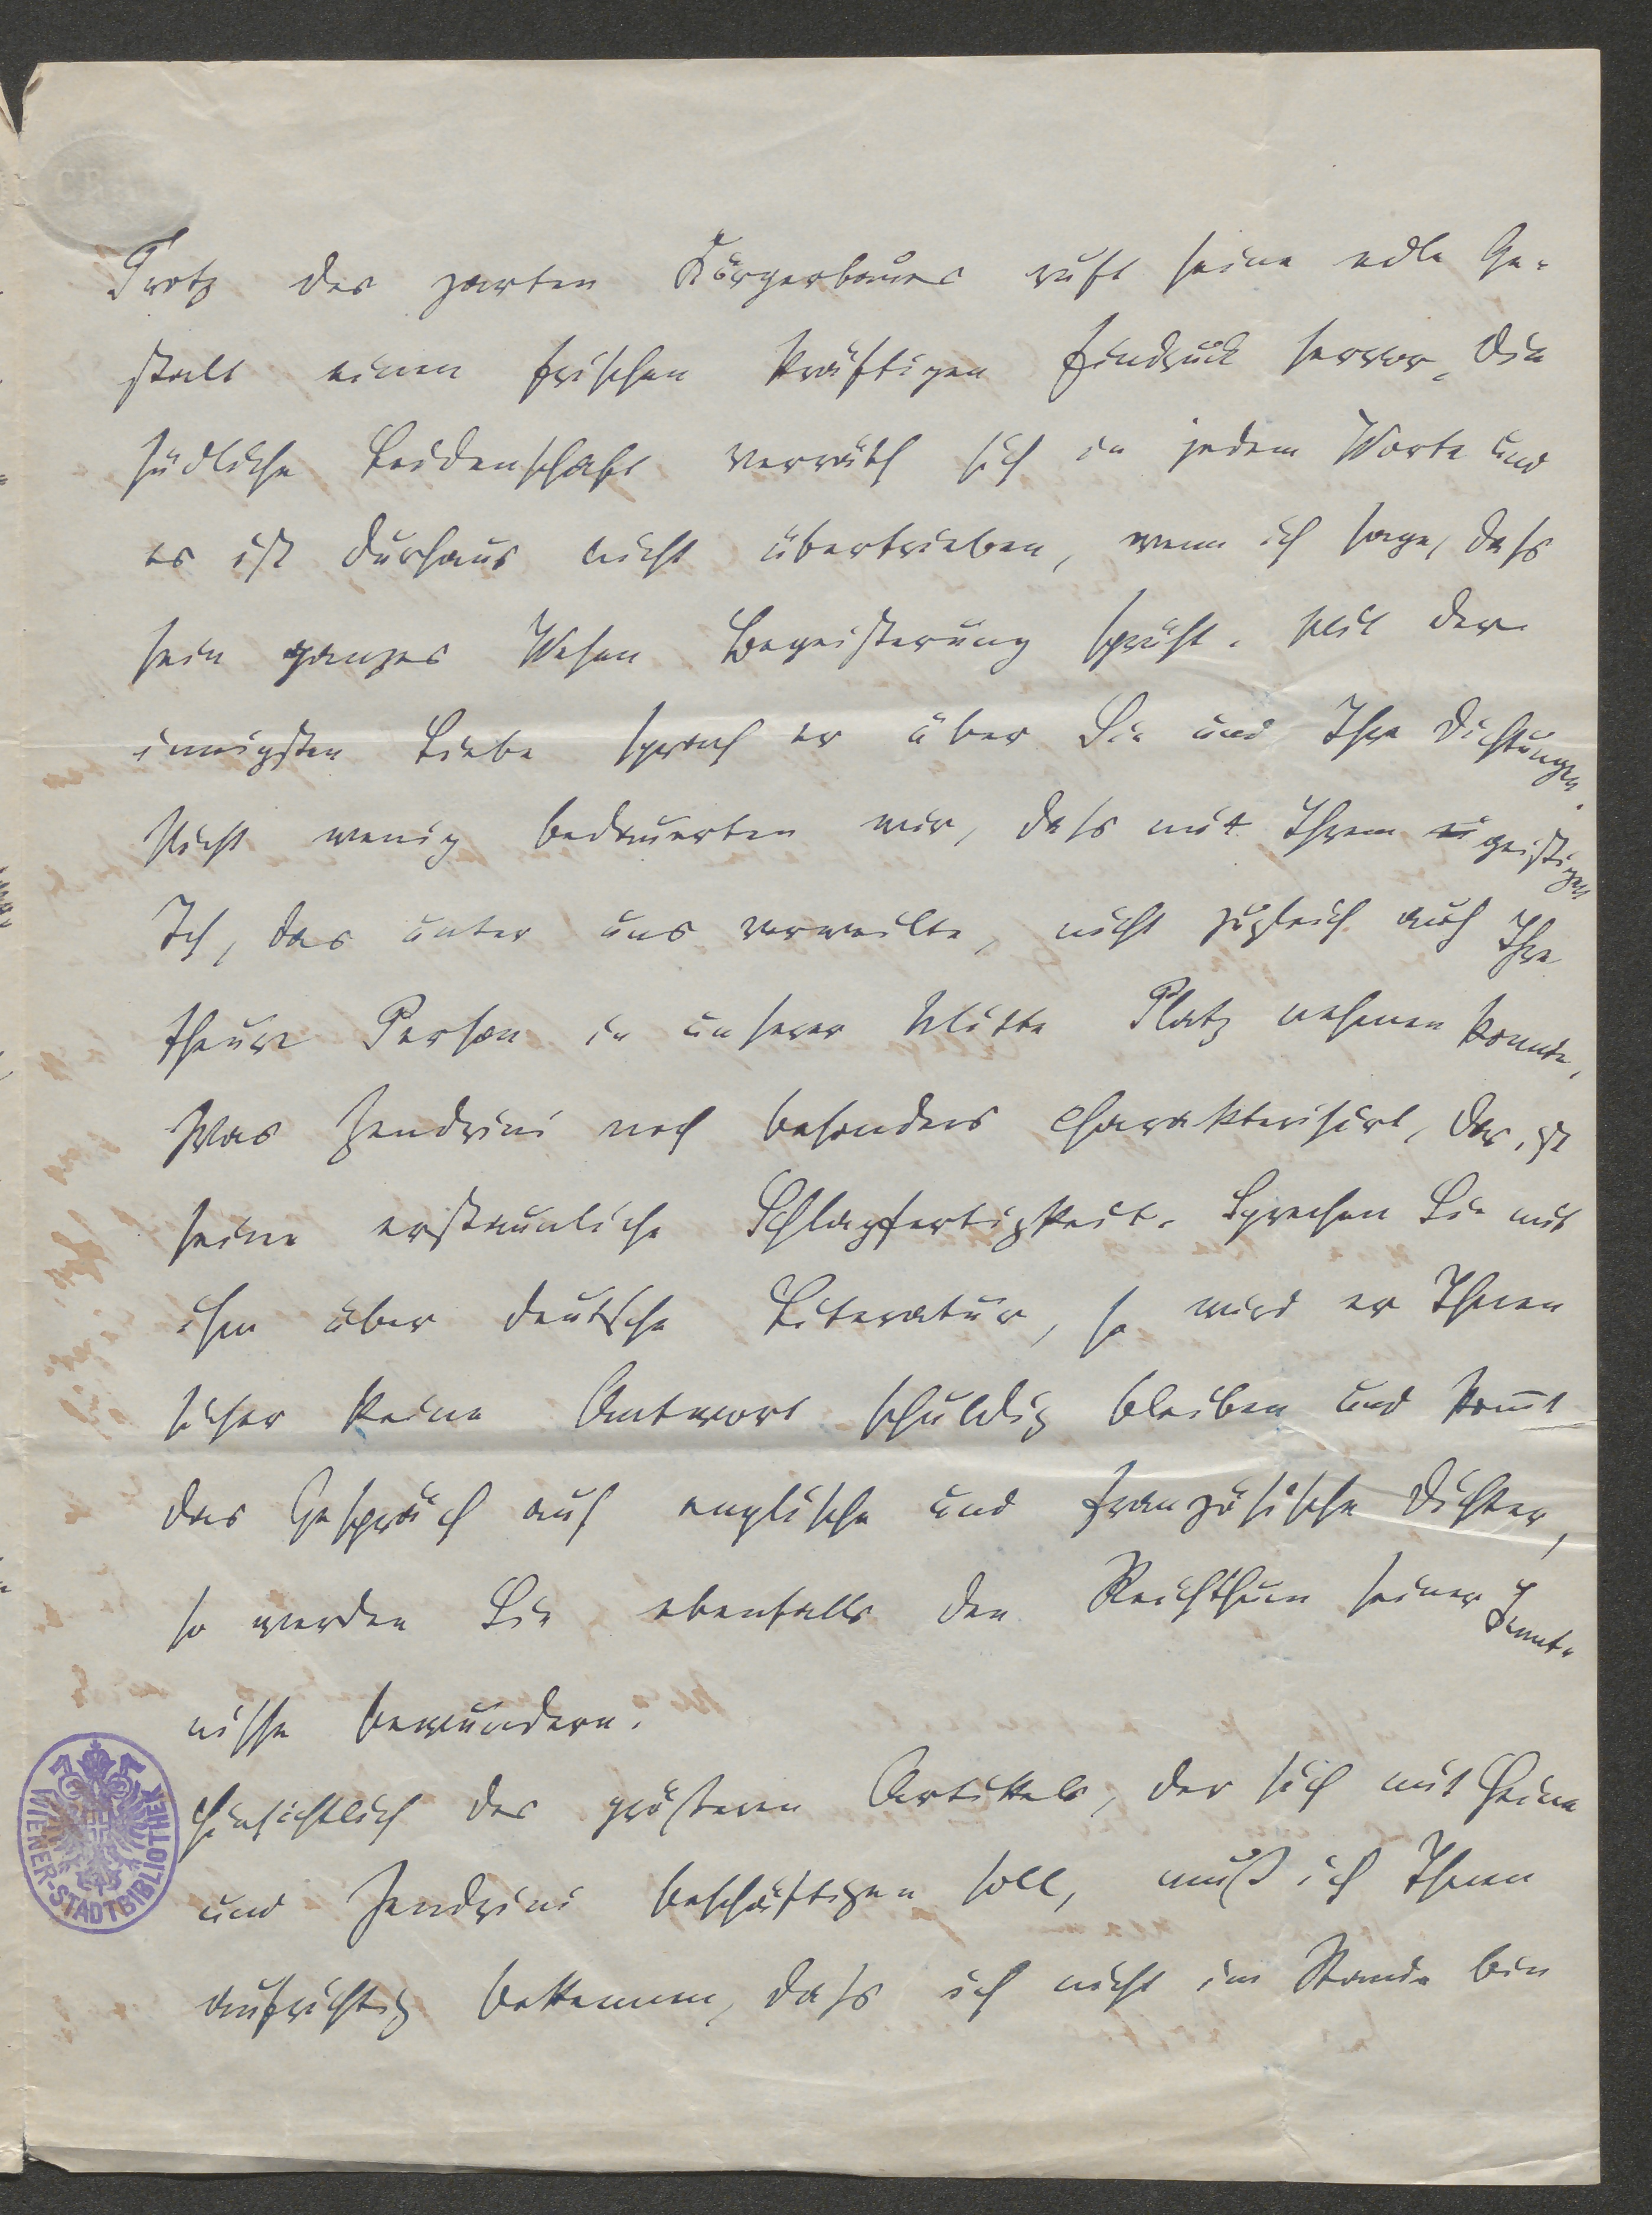 Trotz des zarten Körperbaues ruft seine edle Ge-
stalt einen frischen kräftigen Eindruck hervor, die
südliche Leidenschaft verräth sich in jedem Worte und
es ist durchaus nicht übertrieben, wenn ich sage, dass
sein ganzes Wesen Begeisterung sprüht. Mit der
innigsten Liebe sprach er über Sie und Ihre Dichtungen.
Nicht wenig bedauerten wir, dass mit Ihrem geistigen
Ich, das unter uns verweilte, nicht zugleich auch Ihre
theure Person in unserer Mitte Platz nehmen konnte,
Was Zendrini noch besonders charakterisirt, das ist
seine erstaunliche Schlagfertigkeit. Sprechen Sie mit
ihm über deutsche Literatur, so wird er Ihnen
sicher keine Antwort schuldig bleiben und kom̅t
das Gespräch auf englische und französische Dichter,
so werden Sie ebenfalls den Reichthum seiner Kennt-
nisse bewundern.
Hinsichtlich des größeren Artikels, der sich mit Heine
und Zendrini beschäftigen soll, muß ich Ihnen
aufrichtig bekennen, dass ich nicht im Stande bin
WIENER-STADTBIBLIOTHEK